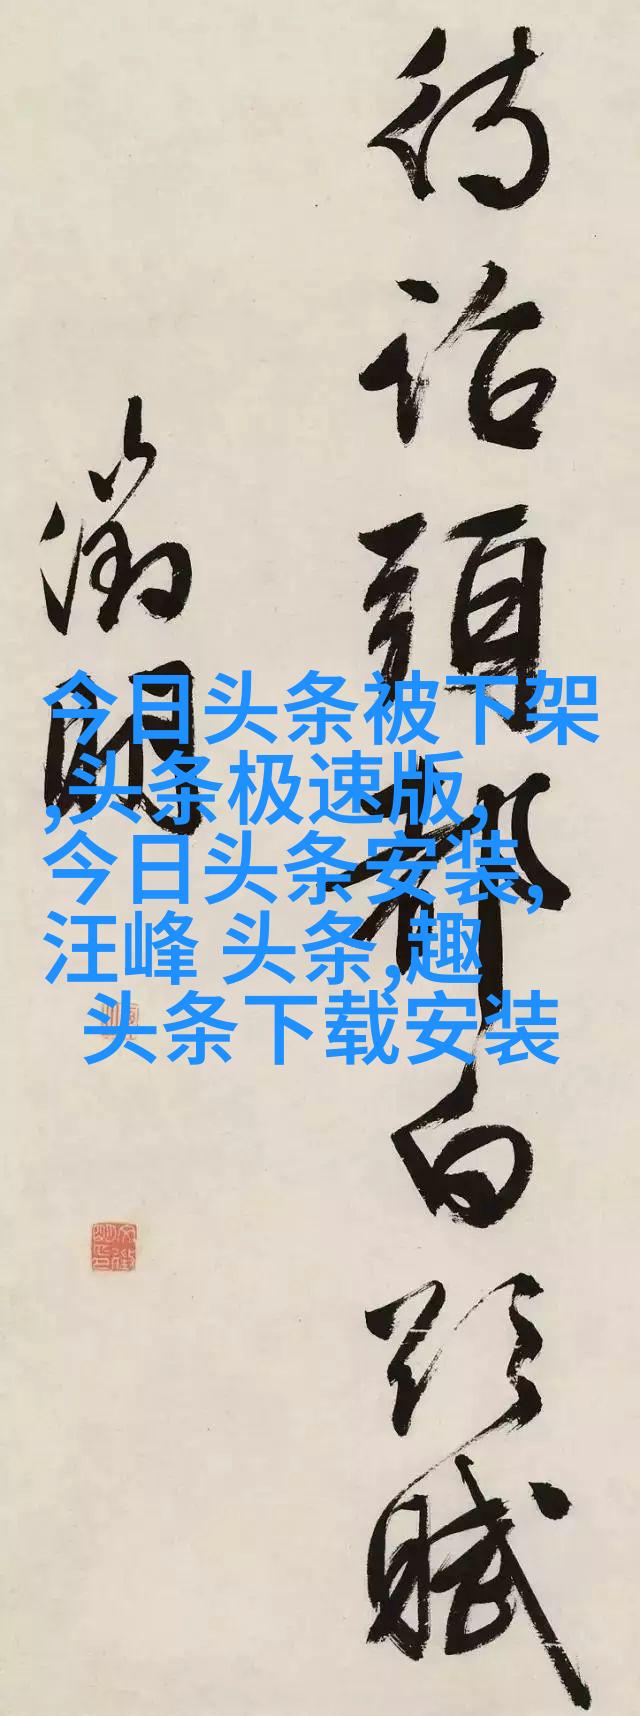 待詔頭都白賦
徵明
今日头条被下架
,头条极速版,
今日头条安装,
汪峰 头条,趣
头条下载安装